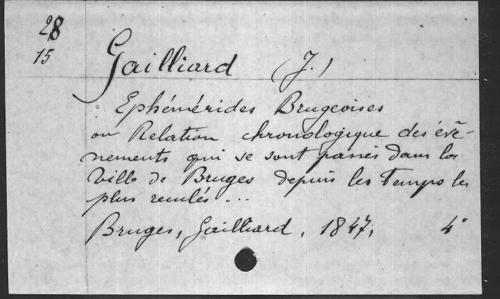 28
15
Gailliard (J.)
Ephémérides Brugeoises
ou Relation chronologique des évè-
nements qui se sont passés dans la
Ville de Bruges depuis les temps les
plus reculés...
Bruges, Gailliard, 1847, 4°